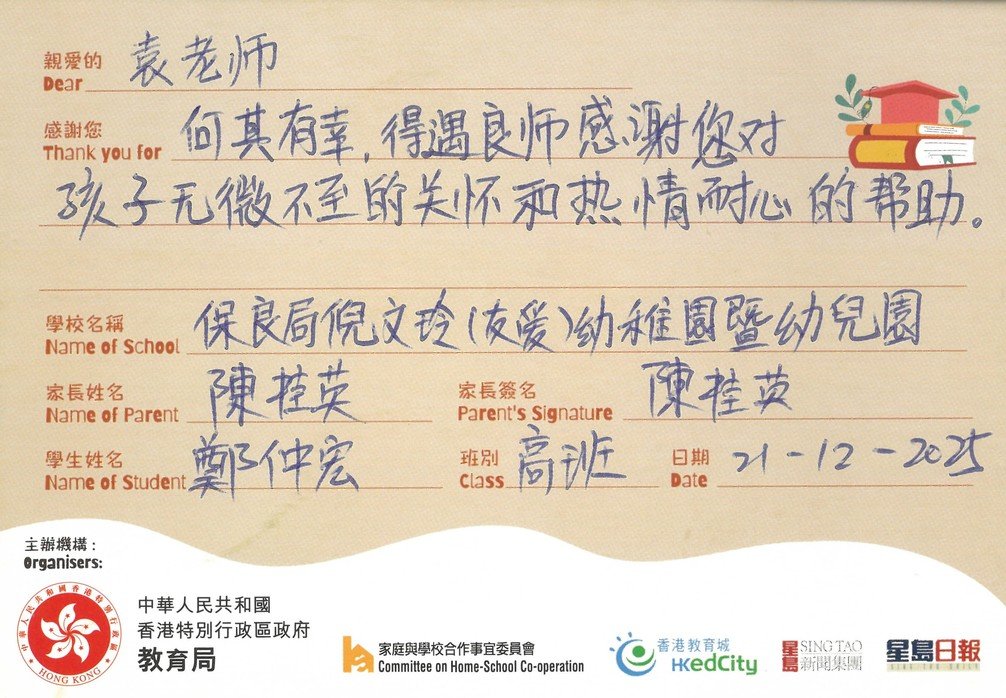 親愛的 袁老师
Dear
感謝您 何其有幸，得遇良师感谢您对
Thank you for
孩子无微不至的关怀和热情耐心的帮助。
學校名稱 保良局倪文玲(友爱)幼稚園暨幼兒園
Name of School
家長姓名 陳桂英 家長簽名 陳桂英
Name of Parent Parent's Signature
學生姓名 鄭仲宏 班別 高班 日期 21-12-2025
Name of Student Class Date
主辦機構：
Organisers:
中華人民共和國香港特別行政區政府
HONG KONG
中華人民共和國
香港特別行政區政府
教育局
家庭與學校合作事宜委員會
Committee on Home-School Co-operation
香港教育城
HKedCity
星島 SING TAO
新聞集團
星島日報